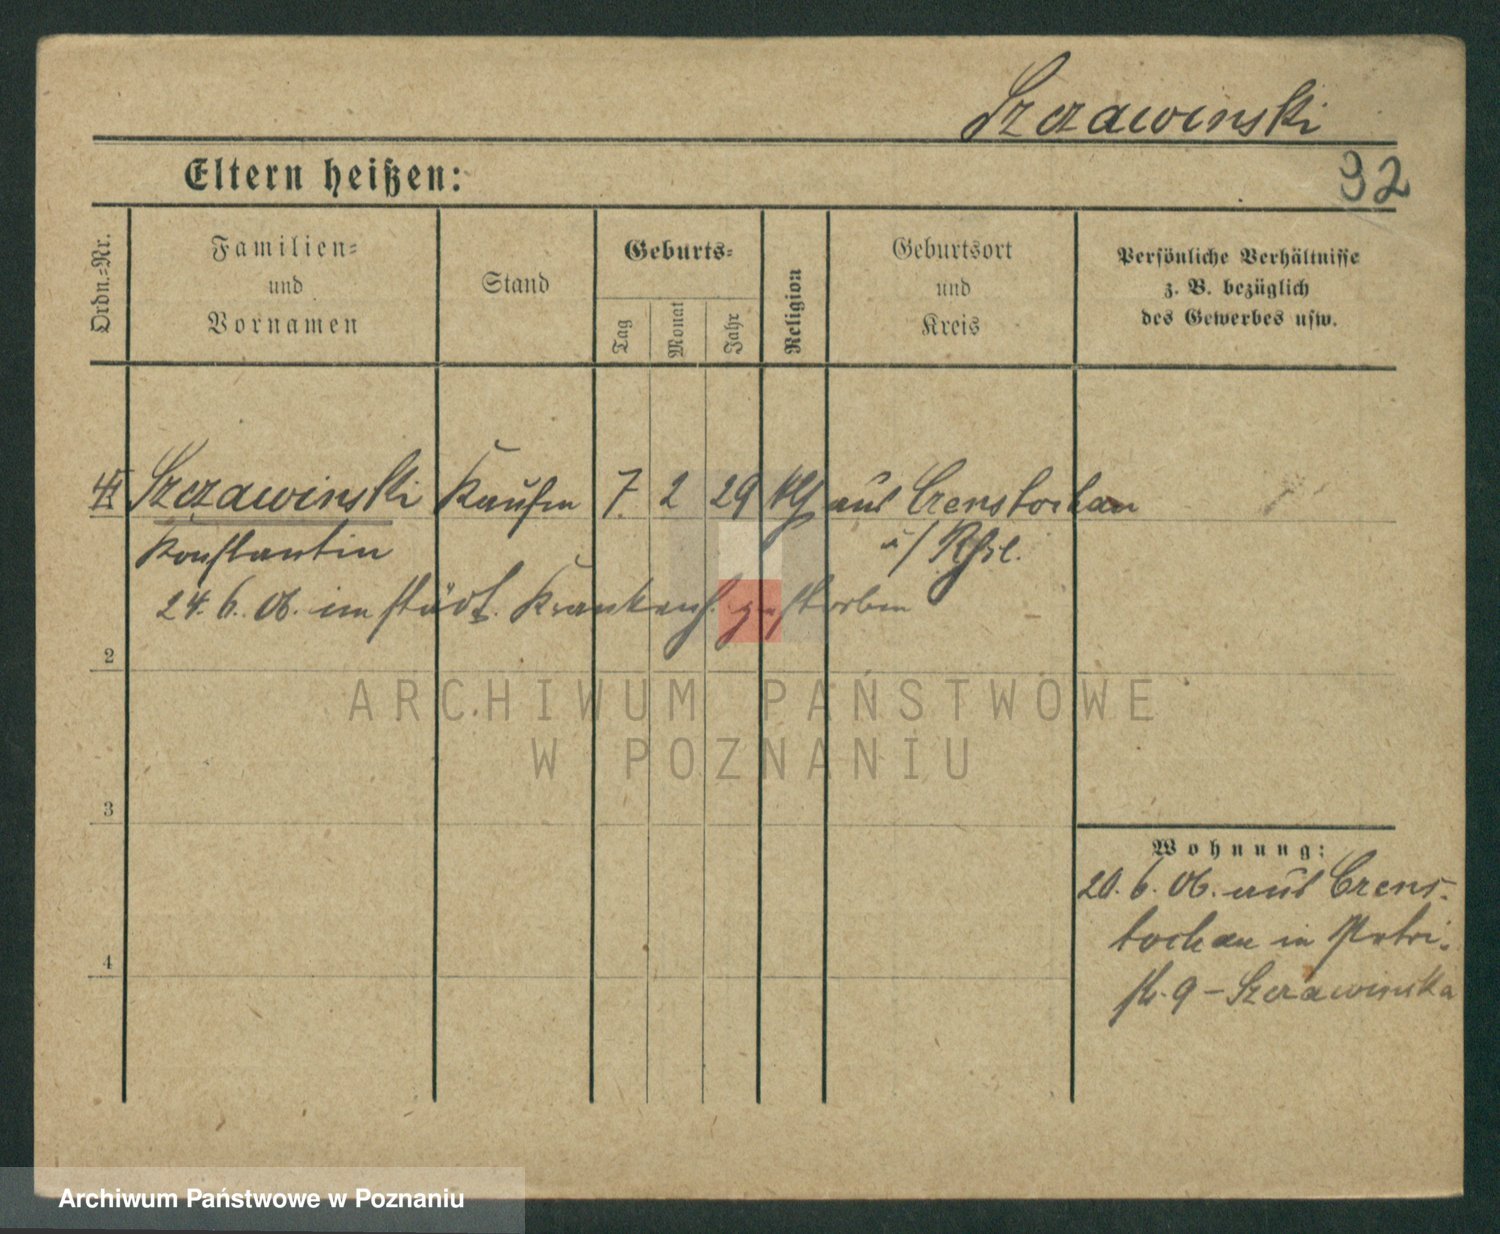 Szczawinski
32
Eltern heißen:
Ordn.-Nr.
Familien-
und
Vornamen
Stand
Geburts-
Tag
Monat
Jahr
Religion
Geburtsort
und
Kreis
Persönliche Verhältnisse
z. B. bezüglich
des Gewerbes usw.
Szczawinski Kaufm 7 2 29 kth aus Czenstochau
Konstantin
24.6.06. im städt. Krankenh. gestorben
2
ARCHIWUM PAŃSTWOWE
W POZNANIU
3
Wohnung:
20.6.06. aus Czens-
tochau in Petri-
4
9 – Szczawinska
Archiwum Państwowe w Poznaniu